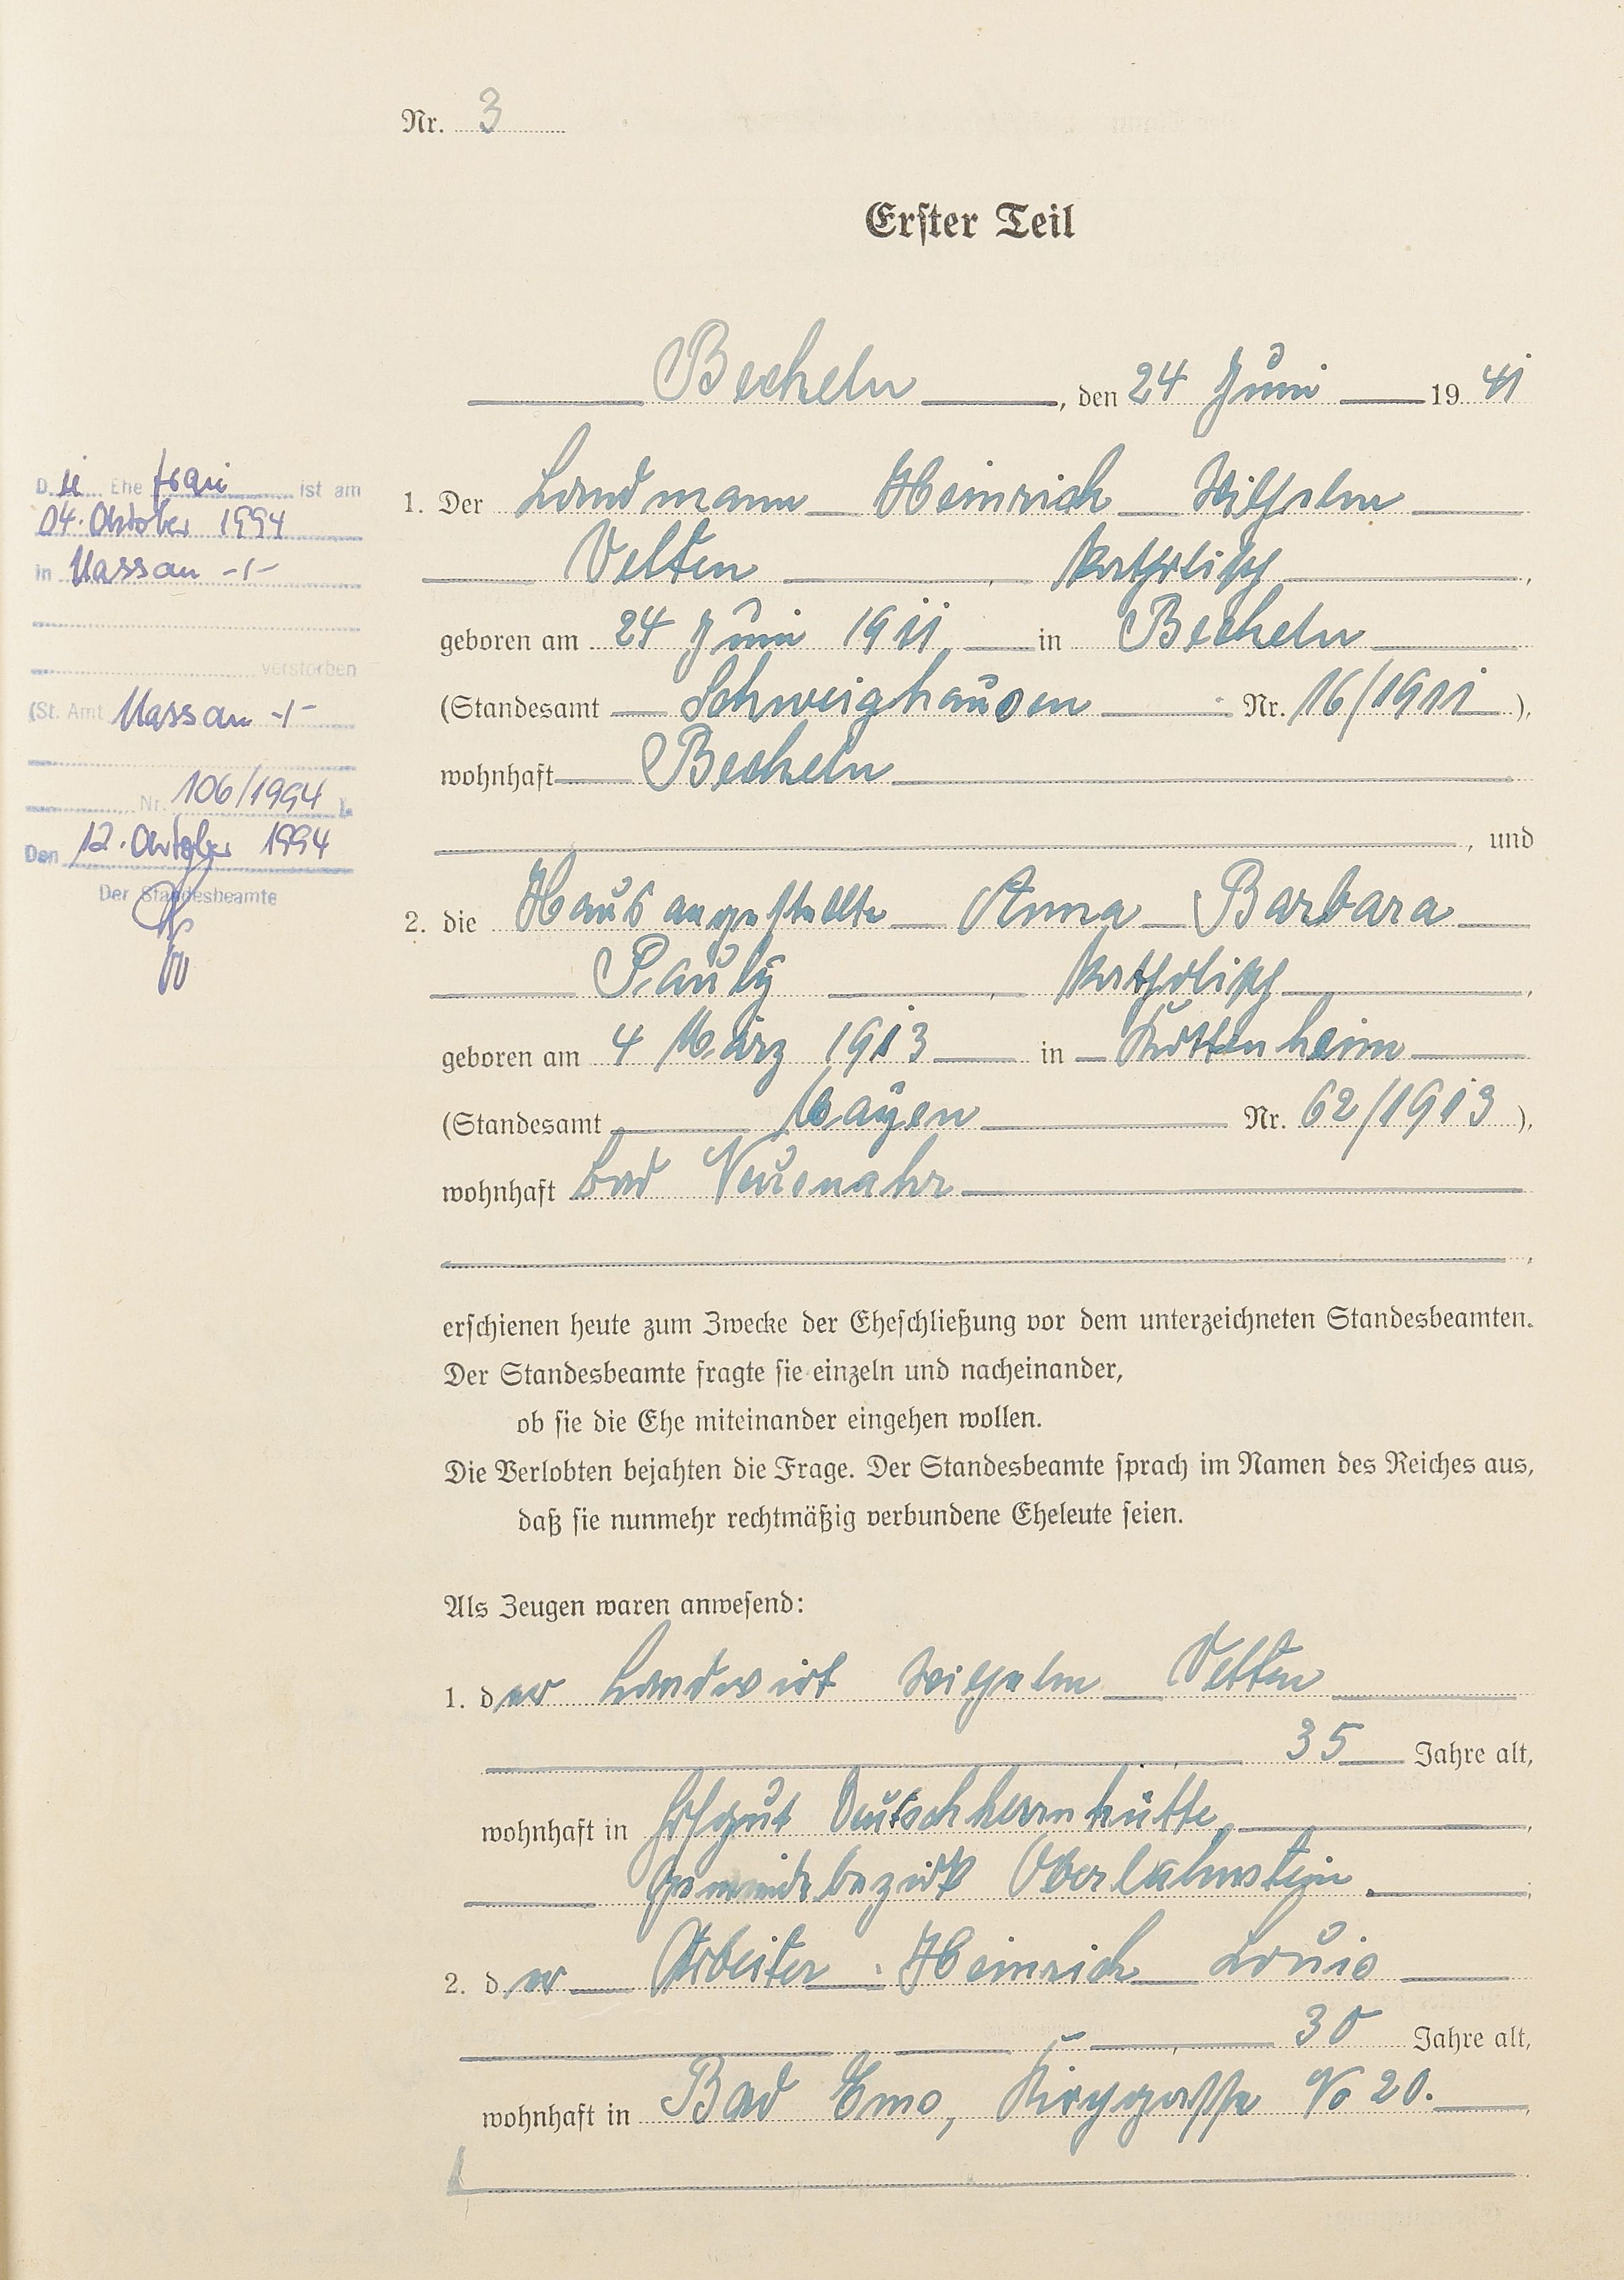 Nr. 3
Erster Teil
Becheln, den 24 Juni 1941
1. Der Landmann Heinrich Wilhelm
Velten, katholisch,
geboren am 24 Juni 1911 in Becheln
(Standesamt Schweighausen Nr. 16/1911),
wohnhaft Becheln
, und
2. die Hausangestellte Anna Barbara
Pauly, katholisch,
geboren am 4 März 1913 in Kottenheim
(Standesamt Mayen Nr. 62/1913),
wohnhaft Bad Neuenahr
,
erschienen heute zum Zwecke der Eheschließung vor dem unterzeichneten Standesbeamten.
Der Standesbeamte fragte sie einzeln und nacheinander,
ob sie die Ehe miteinander eingehen wollen.
Die Verlobten bejahten die Frage. Der Standesbeamte sprach im Namen des Reiches aus,
daß sie nunmehr rechtmäßig verbundene Eheleute seien.
Als Zeugen waren anwesend:
1. der Landwirt Wilhelm Velten
, 35 Jahre alt,
wohnhaft in Hofgut Deutschherrnhütte,
Gemeindebezirk Oberlahnstein.;
2. der Arbeiter Heinrich Louis
, 30 Jahre alt,
wohnhaft in Bad Ems, Kirchgasse No 20.,
Die Ehefrau ist am
04. Oktober 1994
in Nassau -/-
verstorben
(St. Amt Nassau -/-
Nr. 106/1994).
Den 12. Oktober 1994
Der Standesbeamte